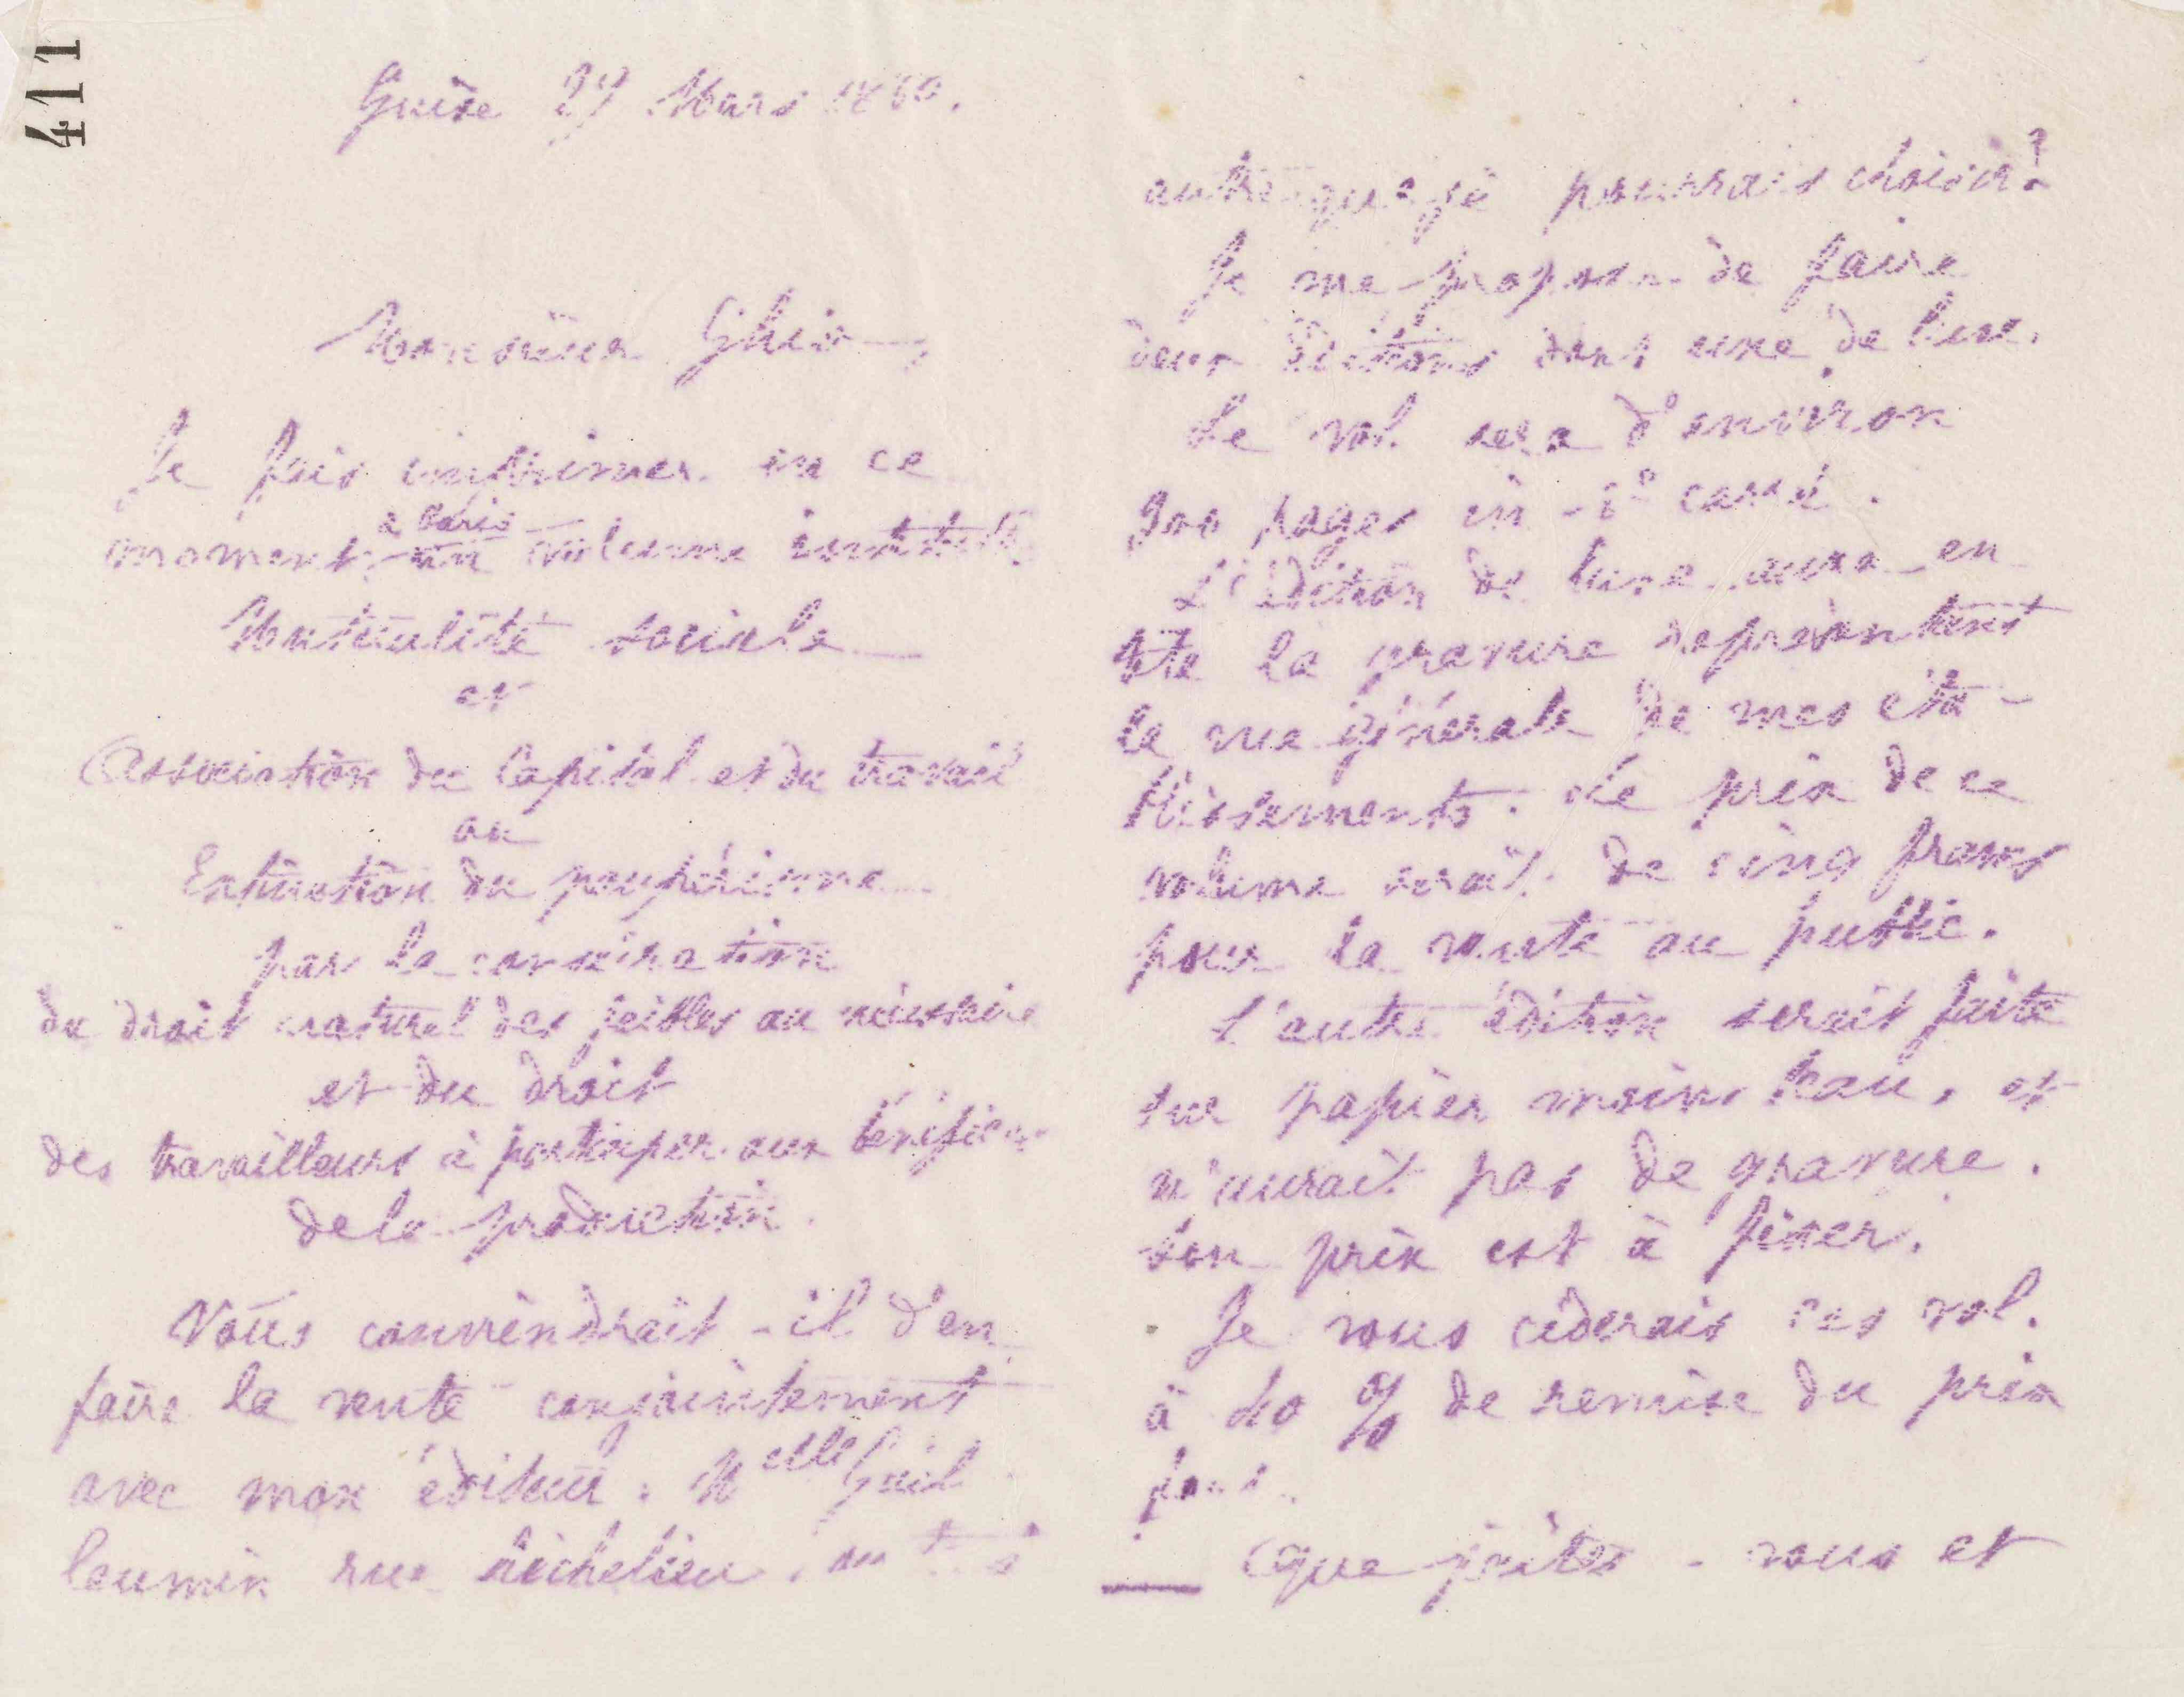 411
Guise 27 Mars 1880.
Monsieur Ghio
Je fais imprimer en ce
moment à Paris un volume intitulé
Mutualité sociale
et
Association du Capital et du travail
ou
Extinction du paupérisme
par la consécration
du droit naturel des faibles au nécessaire
et du droit
des travailleurs à participer aux bénéfices
de la production.
Vous conviendrait-il d'en
faire la vente conjointement
avec mon éditeur. Mr Guil
laumin rue Richelieu, ou
autre que je pourrais choisir?
Je me propose de faire
deux éditions dont une de luxe.
Le vol. sera d'environ
pages in-8° carré.
L'édition de luxe aura en
tête la gravure représentant
la vue générale de mes éta-
blissements. Le prix de ce
volume serait de cinq francs
pour la vente au public.
L'autre édition serait faite
sur papier moins beau, et
n'aurait pas de gravure.
Son prix est à fixer.
Je vous céderais ces vol.
à 40 % de remise du prix
fort.
Que faites-vous et